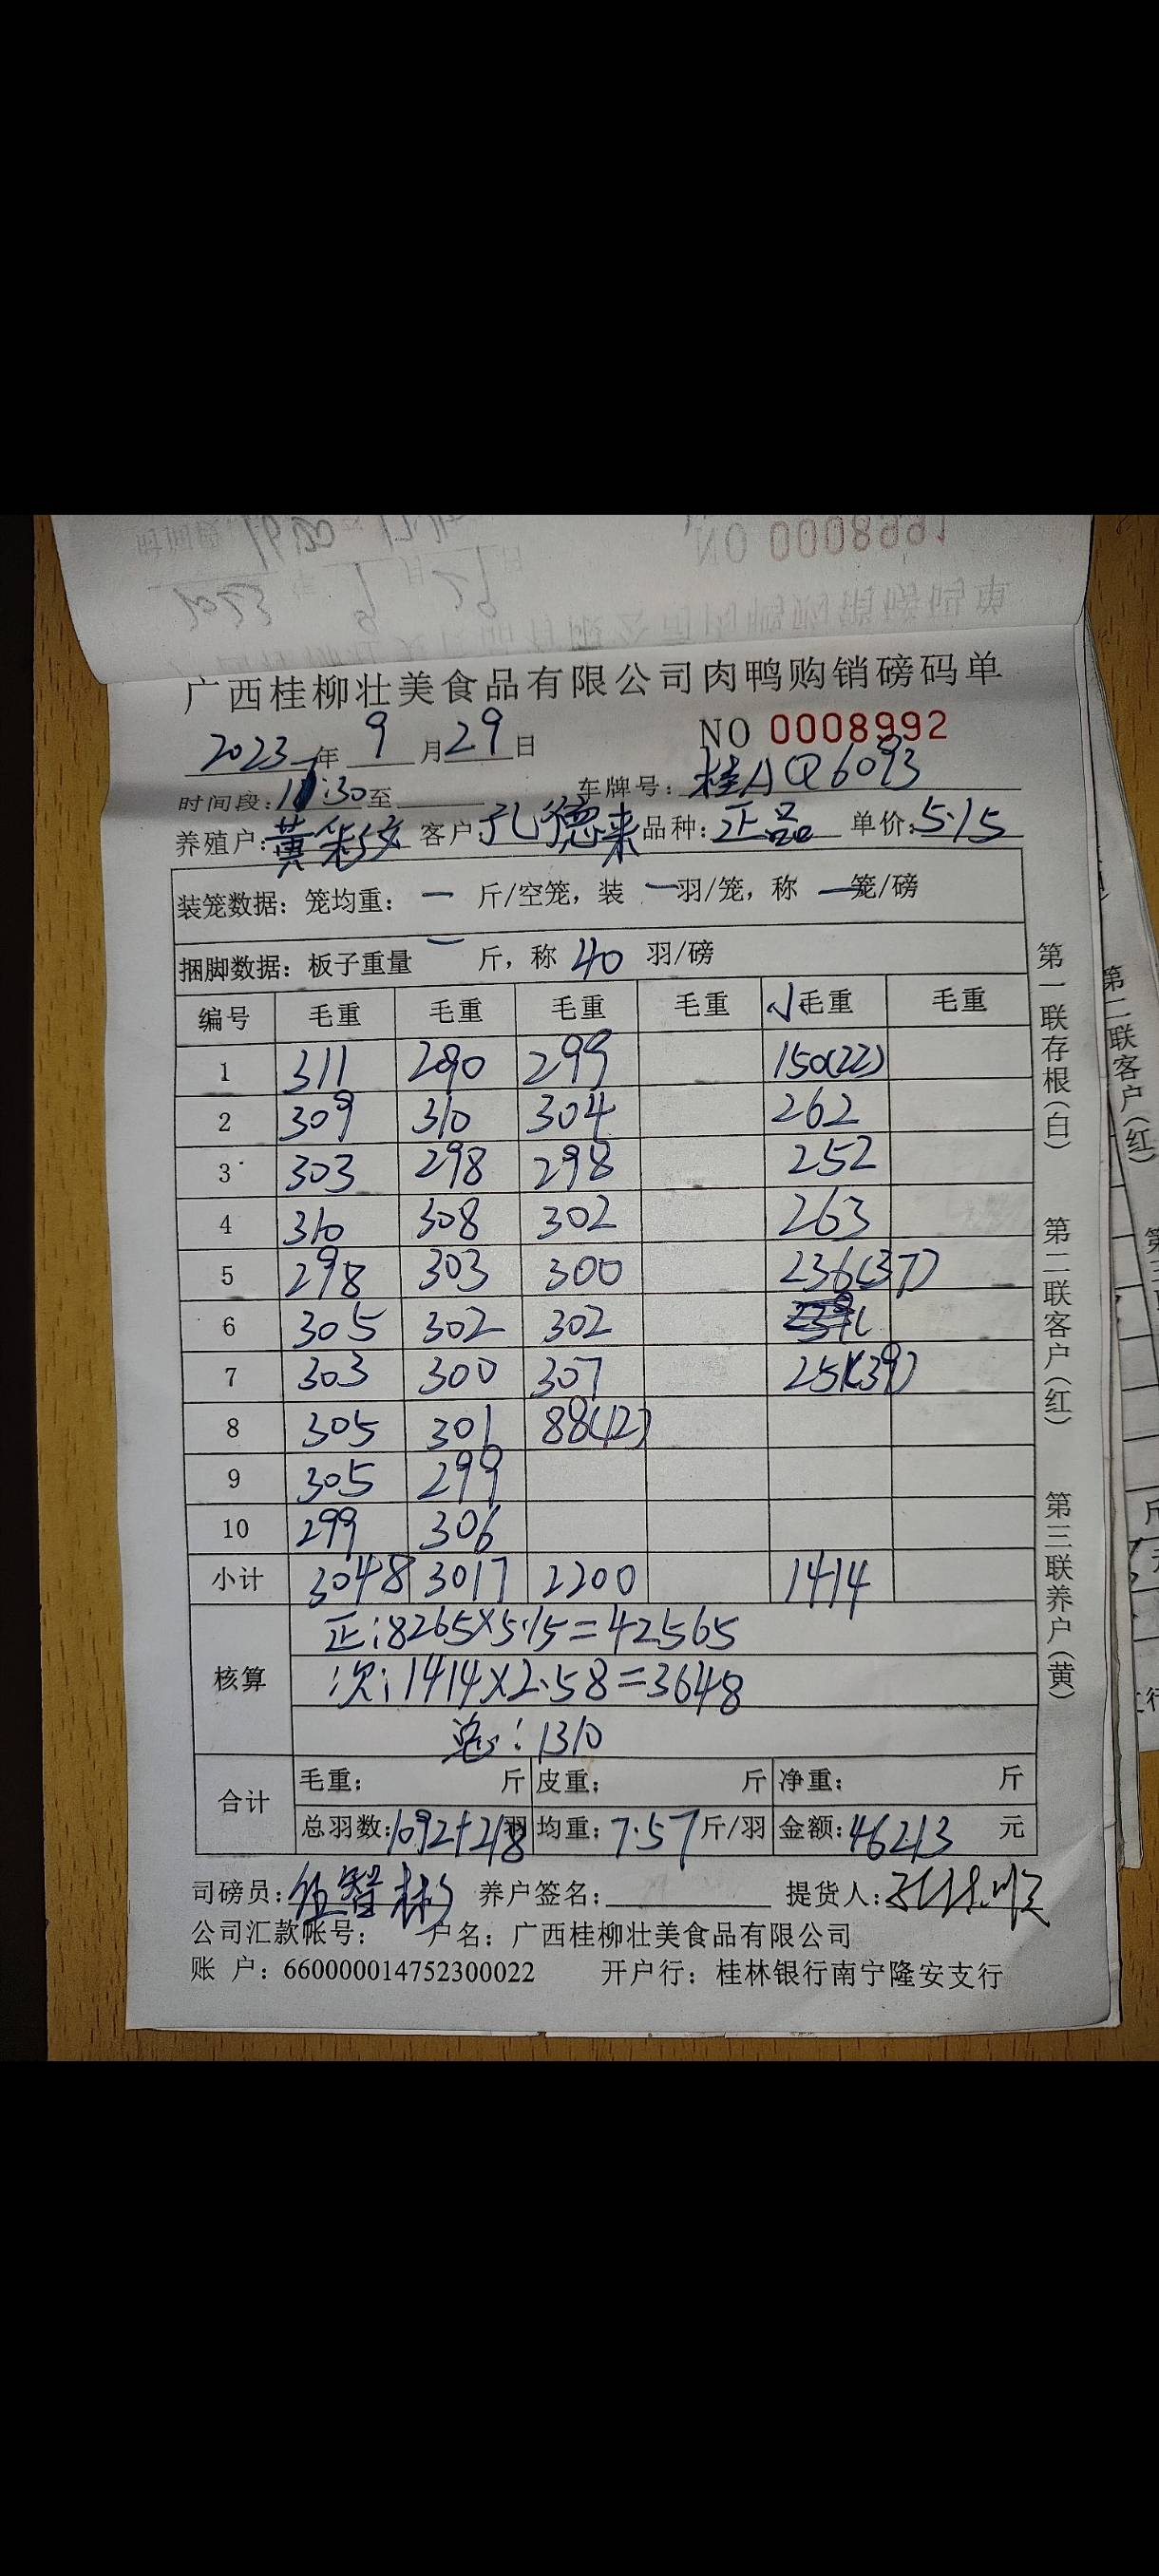 广西桂柳壮美食品有限公司肉鸭购销磅码单
2023年9月29日 NO 0008992
时间段: :30至 车牌号: 桂AQ6093
养殖户: 黄 客户 孔德来 品种: 正品 单价: 5.15
装笼数据: 笼均重: 一 斤/空笼, 装 一 羽/笼, 称 一 笼/磅
捆脚数据: 板子重量 一 斤, 称 40 羽/磅
编号 毛重 毛重 毛重 毛重 小毛重 毛重
1 311 290 299 150(22)
2 309 310 304 262
3 303 298 298 252
4 310 308 302 263
5 298 303 300 236(37)
6 305 302 302
7 303 300 307 251(39)
8 305 301 88(12)
9 305 299
10 299 306
小计 3048 3017 2200 1414
核算 正: 8265×5.15=42565
次: 1414×2.58=3648
总: 1310
合计 毛重: 斤 皮重: 斤 净重: 斤
总羽数: 1092+218羽 均重: 7.57斤/羽 金额: 46213 元
司磅员: 伍智彬 养户签名: 提货人:
公司汇款帐号: 户名: 广西桂柳壮美食品有限公司
账 户: 660000014752300022 开户行: 桂林银行南宁隆安支行
第一联存根(白) 第二联客户(红) 第三联养户(黄)
第二联客户(红)
NO 0008991